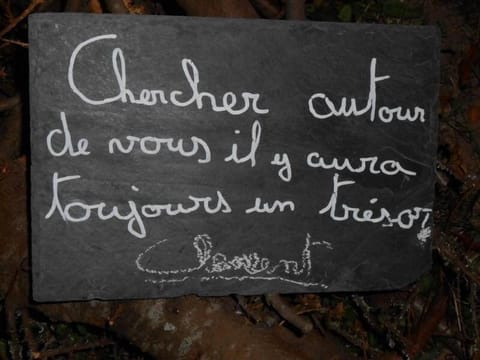 Chercher autour
de vous il y aura
toujours un trésor
Clement